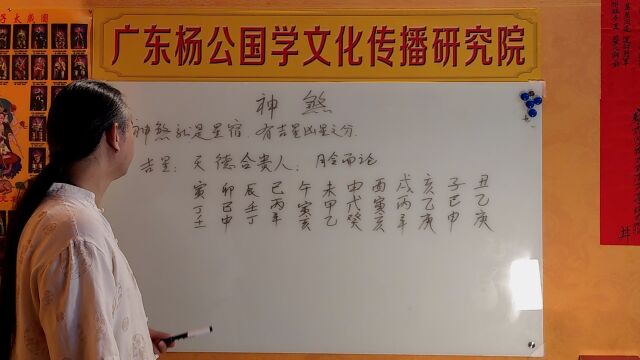 广东杨公国学文化传播研究院
神煞
神煞就是星宿.有吉星凶星之分.
吉星:天德合贵人:月令而论
寅 卯 辰 巳 午 未 申 酉 戌 亥 子 丑
丁 巳 壬 丙 寅 甲 戊 寅 丙 乙 巳 乙
壬 申 丁 辛 亥 乙 癸 亥 辛 庚 申 庚